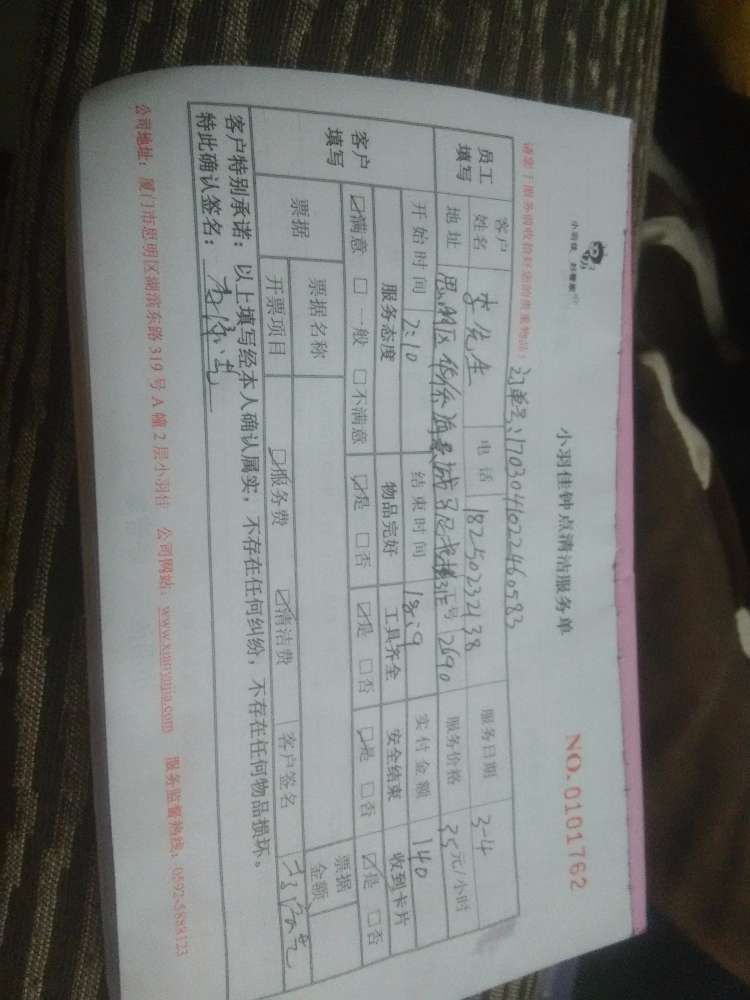 小羽佳钟点清洁服务单
NO.0101762
请您于服务前收拾好您的贵重物品!
订单号:1703041022460583
员工填写
客户姓名 李先生 电话 18250232138 服务日期 3-4
地址 思明区 证号 2690 服务价格 35元/小时
开始时间 2:10 结束时间 实付金额 140
客户填写
服务态度 物品完好 工具齐全 安全结束 收到卡片
☑满意 □一般 □不满意 ☑是 □否 ☑是 □否 ☑是 □否 ☑是 □否
票据 票据名称 票据金额
开票项目 □服务费 ☑清洁费 客户签名
客户特别承诺:以上填写经本人确认属实,不存在任何纠纷,不存在任何物品损坏。
特此确认签名:
公司地址:厦门市思明区湖滨东路319号A幢2层小羽佳 公司网站:www.xiaoyujia.com 服务监督热线:0592-5888123